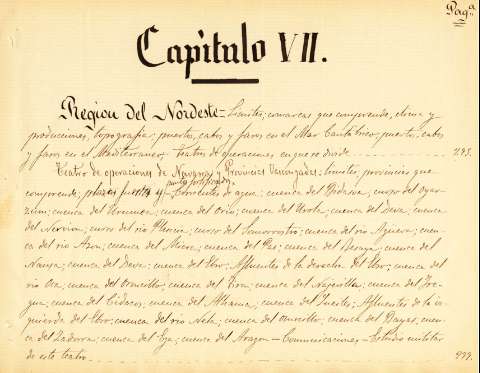 Pag.ª
Capítulo VII.
Region del Nordeste = Limites; comarcas que comprende, clima y
producciones, topografia; puertos, cabos y faros en el Mar Cantábrico; puertos, cabos
y faros en el Mediterraneo; Teatros de operaciones en que se divide 293.
Teatro de operaciones de Navarra y Provincias Vascongadas: limites, provincias que
puntos fortificados
comprende; plazas fuertes y Corrientes de agua; cuenca del Bidasoa, curso del Oyar-
zun; cuenca del Urumea; cuenca del Orio; cuenca del Urola; cuenca del Deva; cuenca
del Nervion; curso del rio Plencia; curso del Somorrostro; cuenca del rio Agüera; cuen-
ca del rio Ason; cuenca del Miera; cuenca del Pas; cuenca del Besaya; cuenca del
Nansa; cuenca del Deva; cuenca del Ebro; Afluentes de la derecha del Ebro; cuenca del
rio Oca; cuenca del Oroncillo; cuenca del Tiron; cuenca del Najerilla; cuenca del Ire-
gua; cuenca del Cidacos; cuenca del Alhama; cuenca del Queiles; Afluentes de la iz-
quierda del Ebro; cuenca del rio Nela; cuenca del Omecillo; cuenca del Bayas; cuen-
ca del Zadorra; cuenca del Ega; cuenca del Aragon - Comunicaciones - Estudio militar
de este teatro 299.